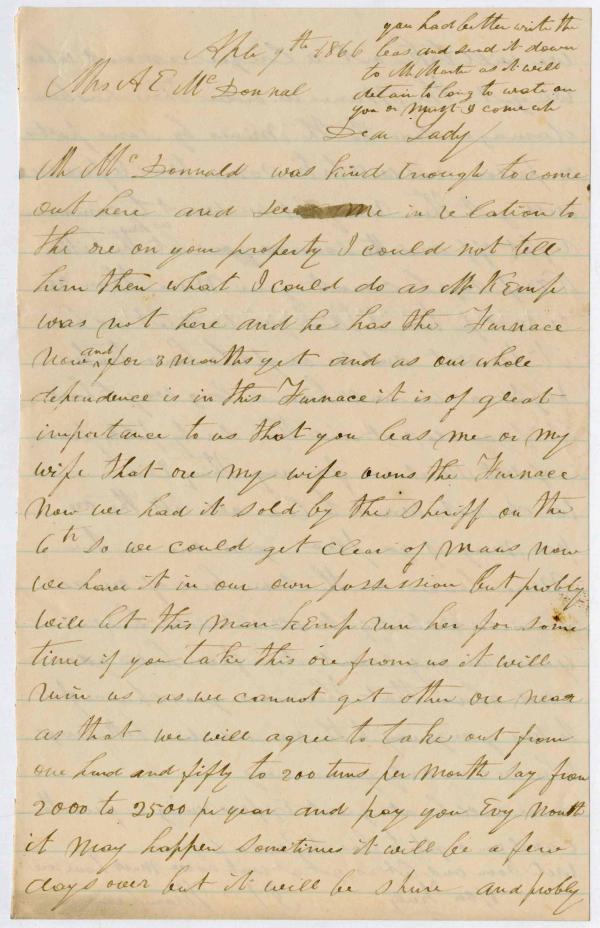 you had better write the
leas and send it down
to Mr Martin as it will
detain to long to wate on
you or Must I come up
Aple 9th 1866
Mrs A E McDonnal
Dear Lady
Mr McDonnald was kind Enough to come
out here and See me in relation to
the ore on your property I could not tell
him then what I could do as Mr Kemp
was not here and he has the Furnace
Now and for 3 months yet and as our whole
dependence is in this Furnace it is of great
importance to us that you leas me or my
wife that ore my wife owns the Furnace
Now we had it sold by the Sheriff on the
6th so we could get clear of Maus Now
we have it in our own possession but probly
will let this man Kemp run her for some
time if you take this ore from us it will
ruin us as we cannot get other ore near
as that we will agree to take out from
one hund and fifty to 200 tuns per Month Say from
2000 to 2500 pr year and pay you Evy Month
it May happen Sometimes it will be a few
days over but it will be Shure and probly